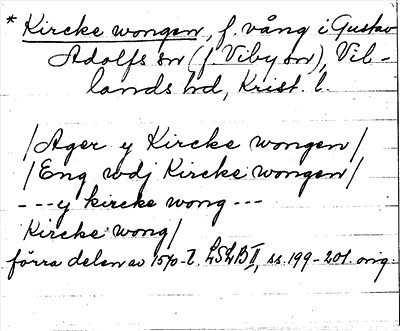 * Kircke wongen, f. vång i Gustav
Adolfs sn (f. Viby sn), Vil-
lands hd, Krist. l.
/Ager y Kircke wongen/
/Eng wdj Kircke wongen/
---y kircke wong---
Kircke wong/
förra delen av 1570-t. LSLB II, ss. 199-201. orig.